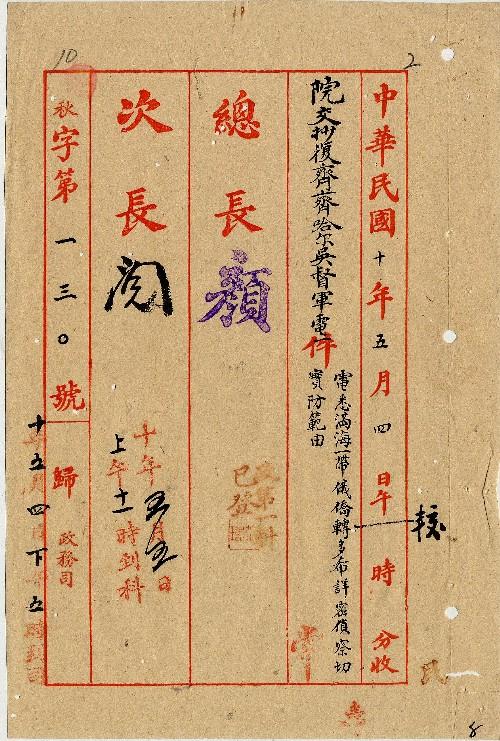 中華民國十年五月四日午 時 分收
較
院交抄復齊齊哈尔吳督軍電一件
電悉滿海一帶俄僑轉多希詳密偵察切
實防範由
總長顏
已發
次長閱
十年五月五日
上午十一時到科
秋字第一三〇號歸政務司
十年五月四日下午五時到司
10
2
8